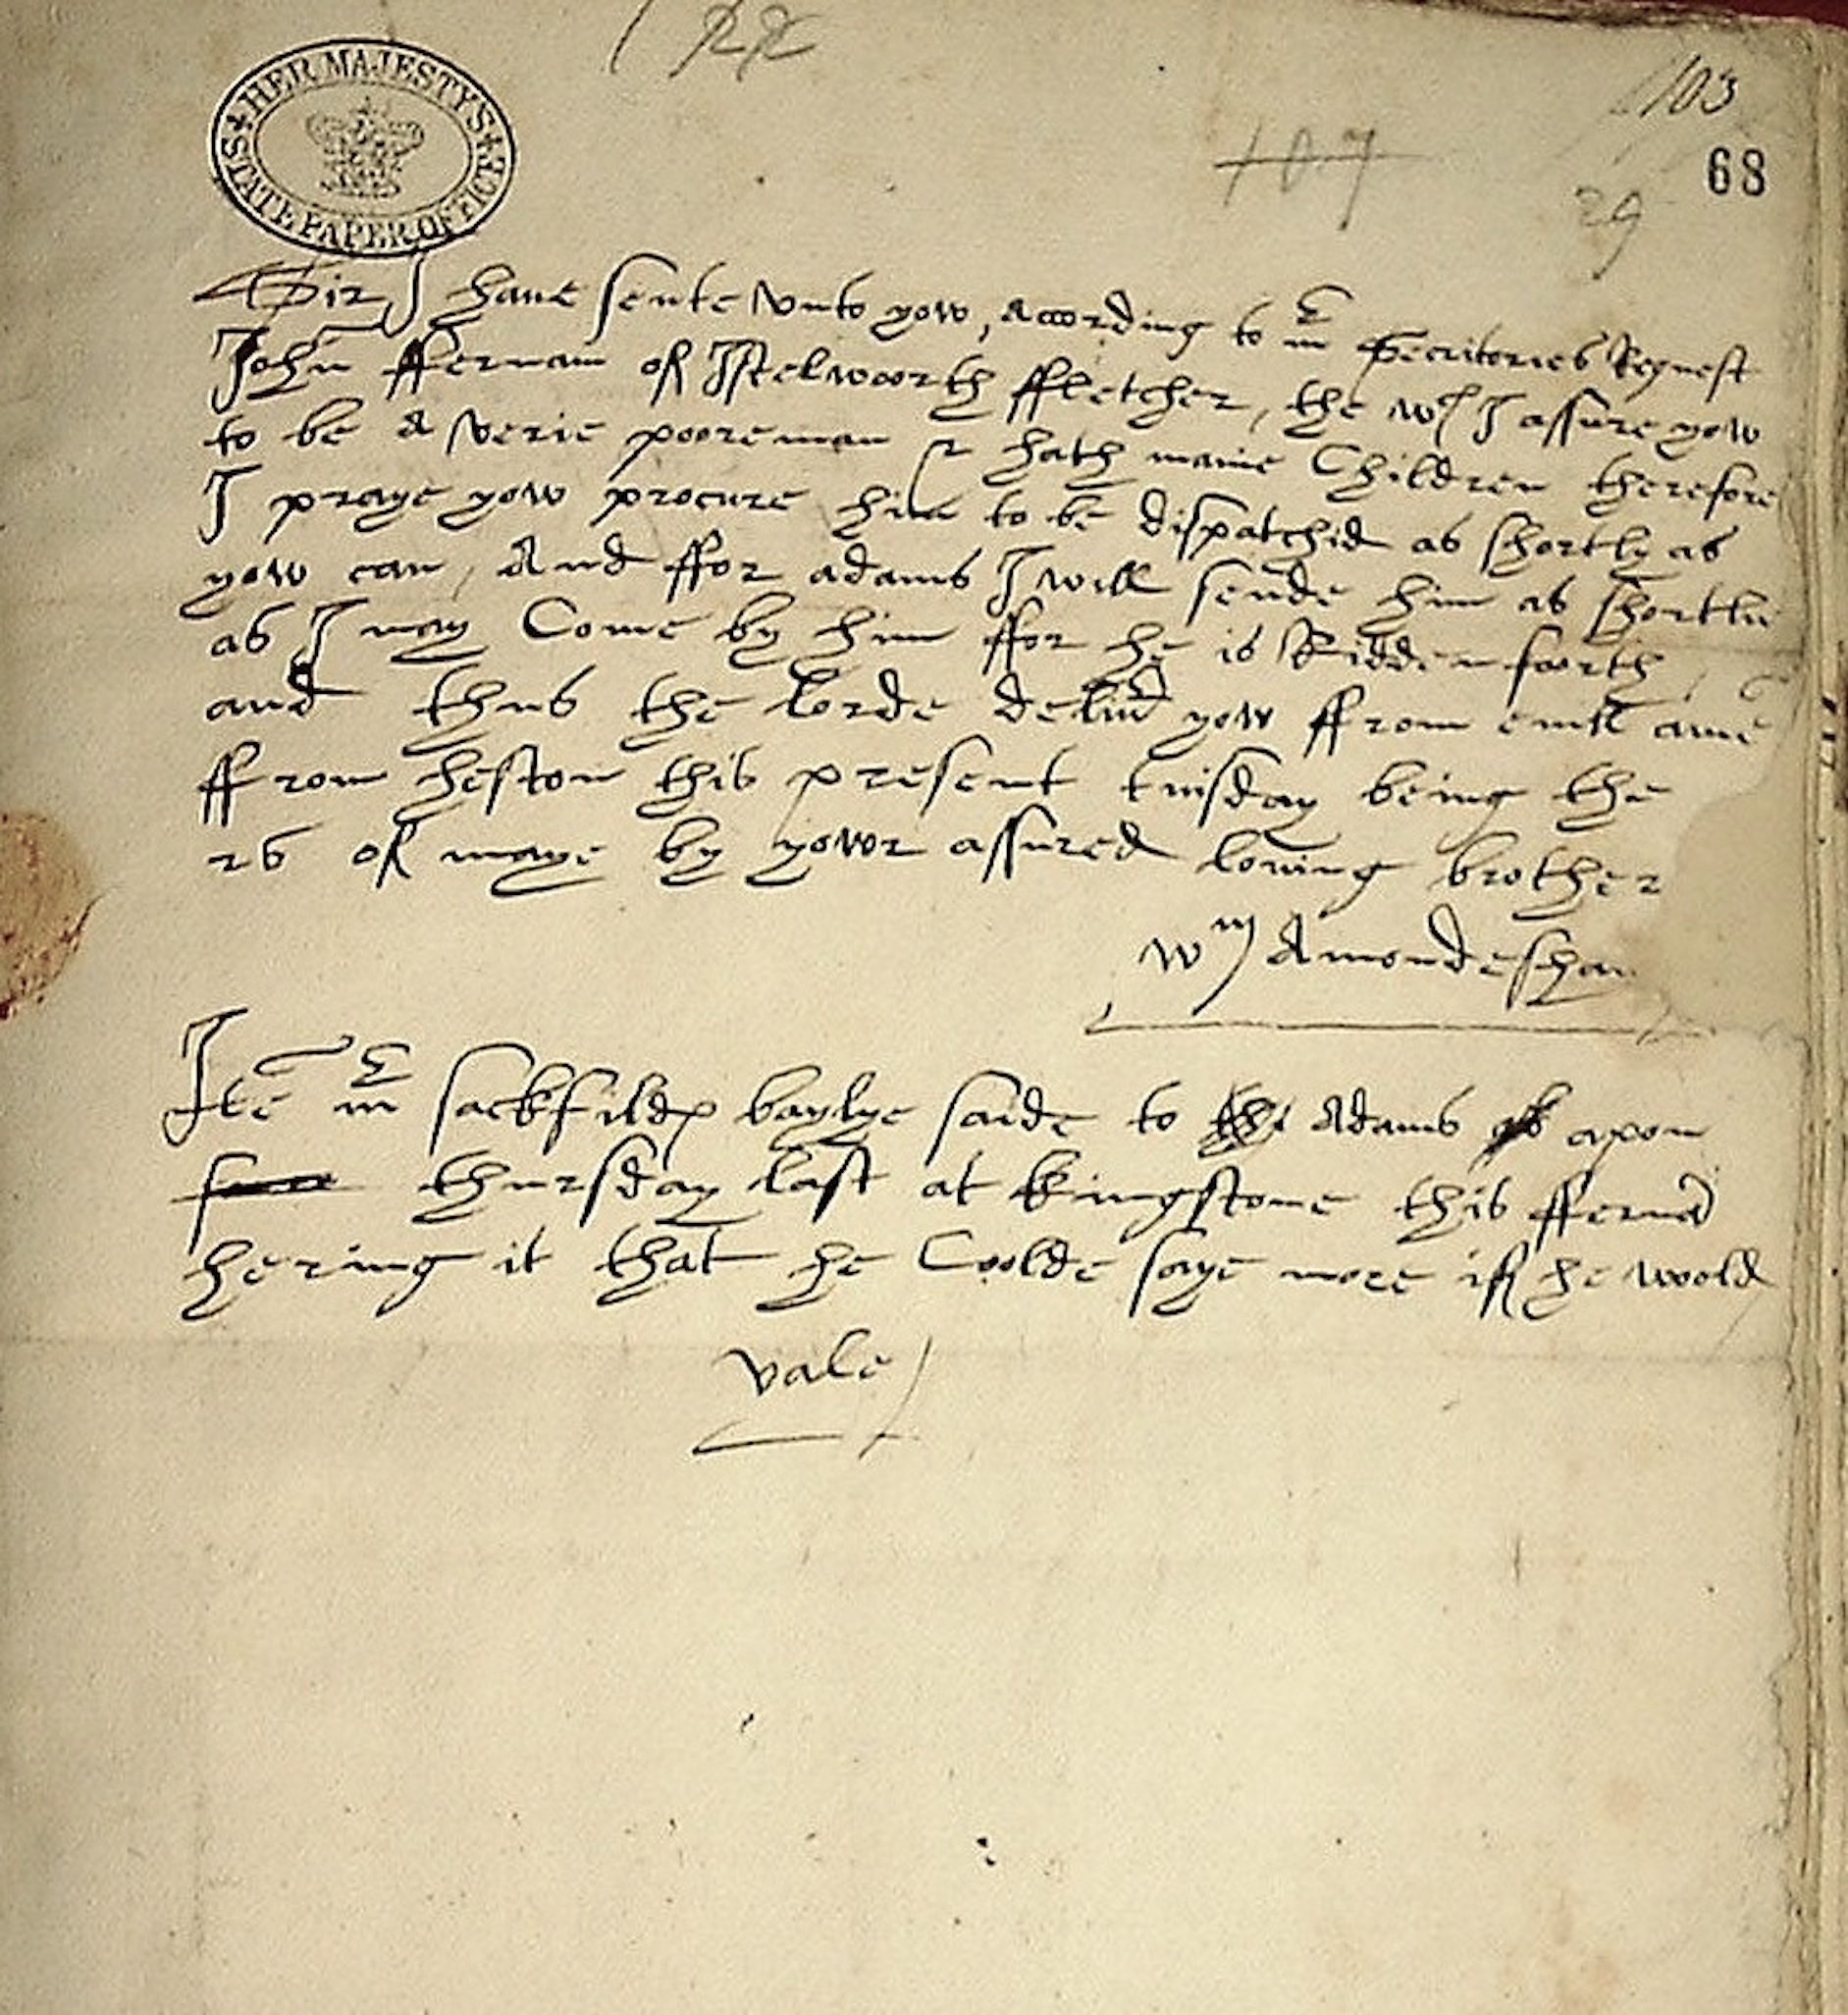 HER MAJESTY'S
STATE PAPER OFFICE
103
107
68
29
Sir I have sente vnto yow, According to mr Secritories Request
John ffernam of Istelwoorth ffletcher, the wch I assure yow
to be A verie poore man & hath manie Children therefore
I praye yow procure him to be dispatchid as shortly as
yow can, And ffor adams I will sende him as shortlie
as I may Come by him ffor he is Ridden foorth
and thus the lorde deliud yow ffrom euill ame
ffrom heston this present tuisday being the
26 of maye by yowr assured loving brother
Wm Amondesham
Ite mr sackfildes baylye saide to Adams apon
thursday last at kingstone this ffernā
hering it that he Coolde saye more if he woold
vale